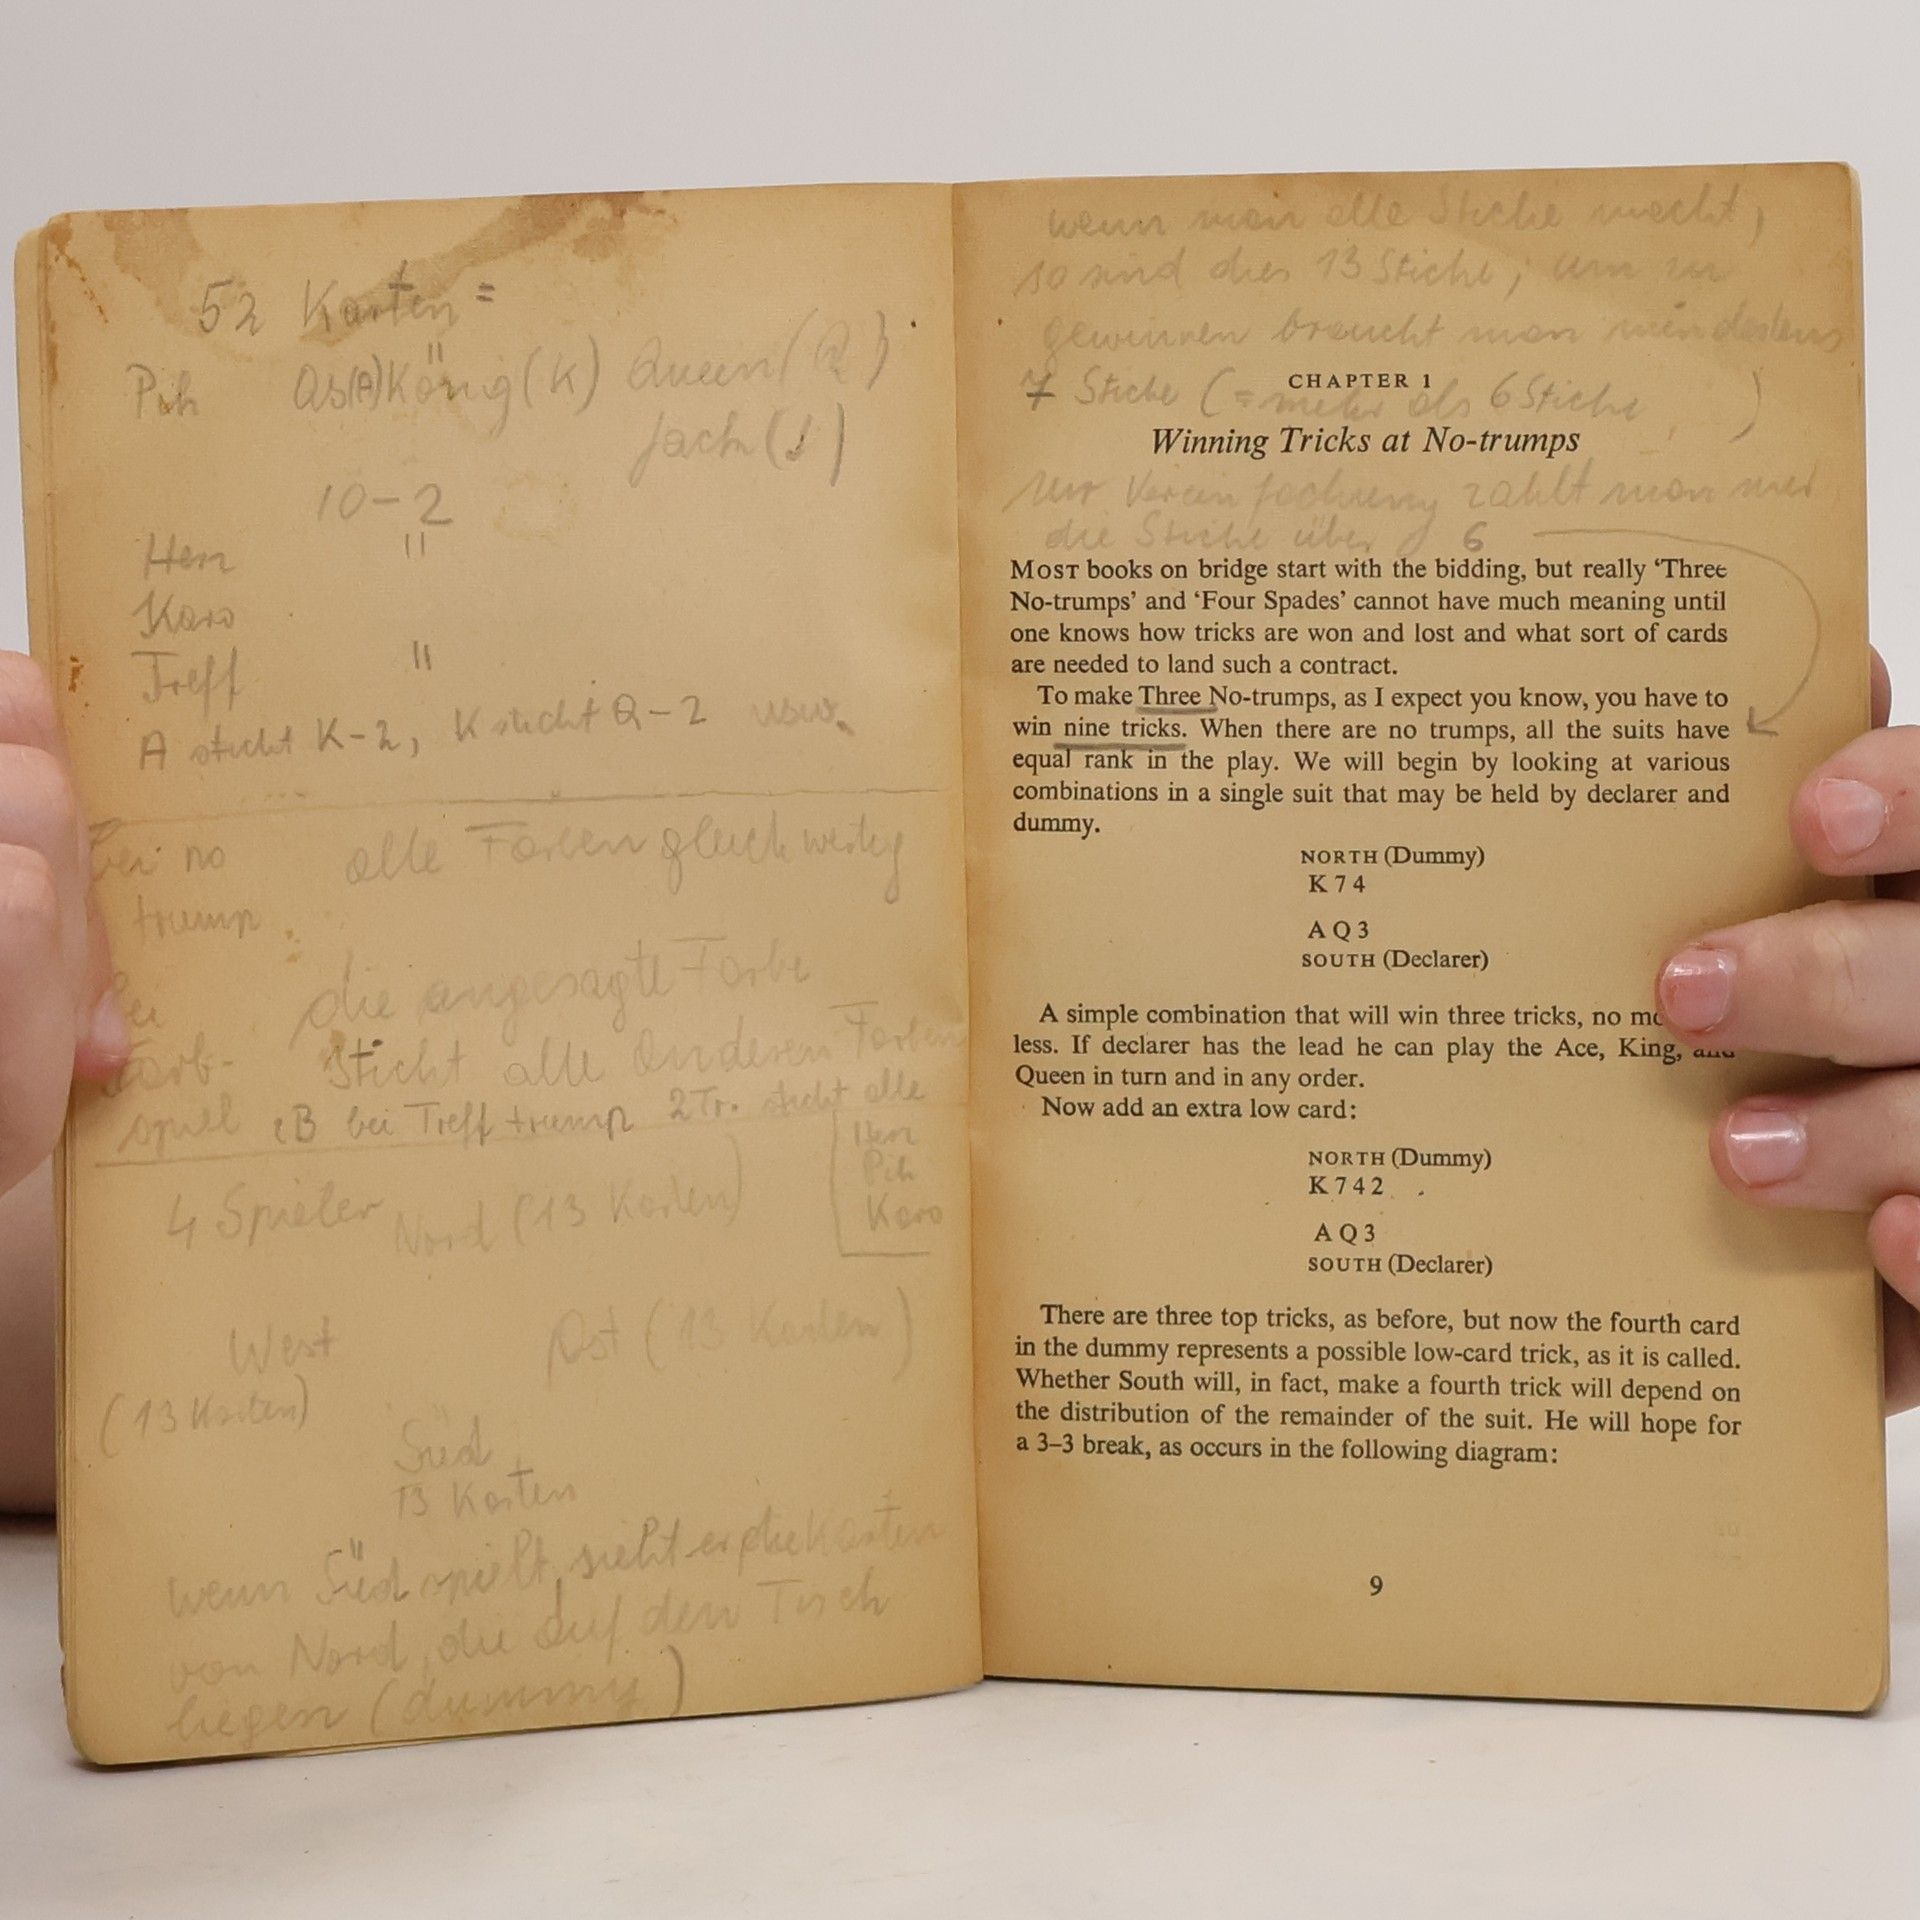 52 Karten =
Pik As(A) König(K) Queen(Q)
Jack(J)
10-2
Herz "
Karo
Treff "
A sticht K-2, K sticht Q-2 usw.
bei no alle Farben gleichwertig
trump
bei die angesagte Farbe
Farb- sticht alle anderen Farben
spiel zB bei Treff trump 2Tr. sticht alle
Herz
Pik
Karo
4 Spieler Nord (13 Karten)
West Ost (13 Karten)
(13 Karten)
Süd
13 Karten
wenn Süd spielt, sieht er die Karten
von Nord, die auf den Tisch
liegen (dummy)
wenn man alle Stiche macht,
so sind dies 13 Stiche; um zu
gewinnen braucht man mindestens
7 Stiche (= mehr als 6 Stiche)
CHAPTER 1
Winning Tricks at No-trumps
zur Vereinfachung zählt man nur
die Stiche über 6
MOST books on bridge start with the bidding, but really ‘Three
No-trumps’ and ‘Four Spades’ cannot have much meaning until
one knows how tricks are won and lost and what sort of cards
are needed to land such a contract.
To make Three No-trumps, as I expect you know, you have to
win nine tricks. When there are no trumps, all the suits have
equal rank in the play. We will begin by looking at various
combinations in a single suit that may be held by declarer and
dummy.
NORTH (Dummy)
K 7 4
A Q 3
SOUTH (Declarer)
A simple combination that will win three tricks, no
less. If declarer has the lead he can play the Ace, King, and
Queen in turn and in any order.
Now add an extra low card:
NORTH (Dummy)
K 7 4 2
A Q 3
SOUTH (Declarer)
There are three top tricks, as before, but now the fourth card
in the dummy represents a possible low-card trick, as it is called.
Whether South will, in fact, make a fourth trick will depend on
the distribution of the remainder of the suit. He will hope for
a 3–3 break, as occurs in the following diagram:
9